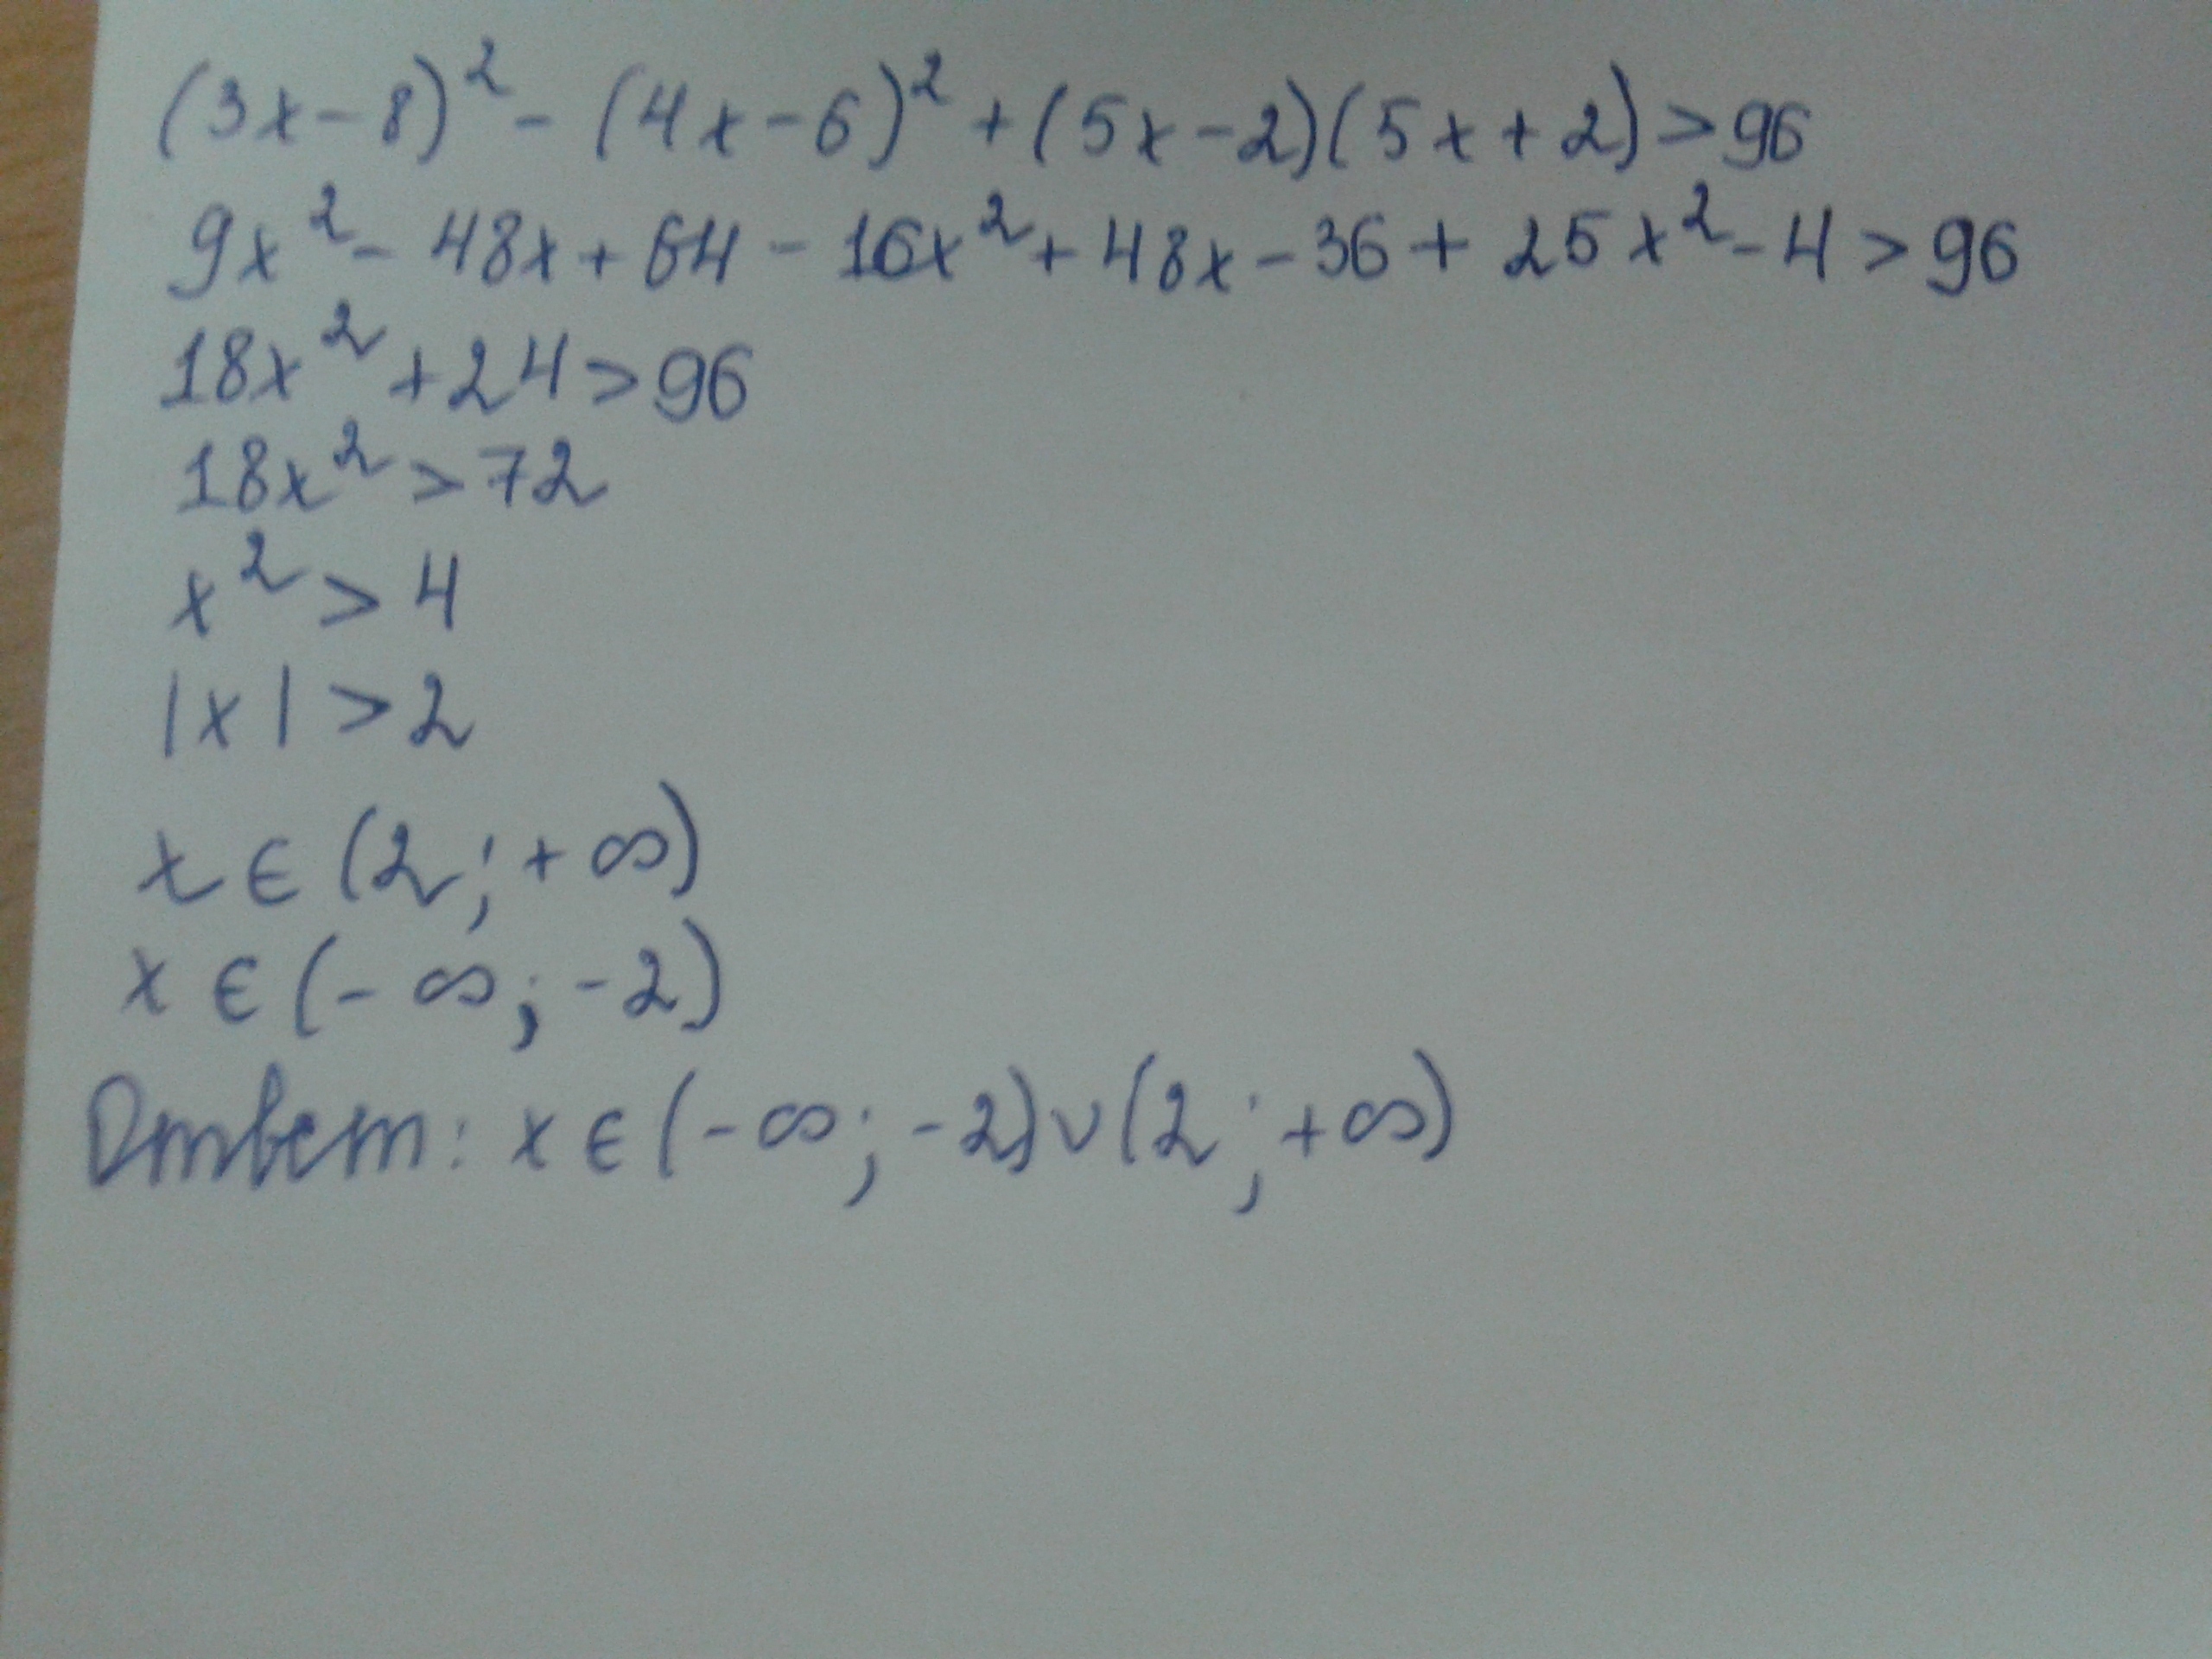 (3x-8)² - (4x-6)² + (5x-2)(5x+2)>96
9x² - 48x + 64 - 16x² + 48x - 36 + 25x² - 4 > 96
18x² + 24 > 96
18x² > 72
x² > 4
|x| > 2
x ∈ (2; +∞)
x ∈ (-∞; -2)
Ответ: x ∈ (-∞; -2) ∪ (2; +∞)